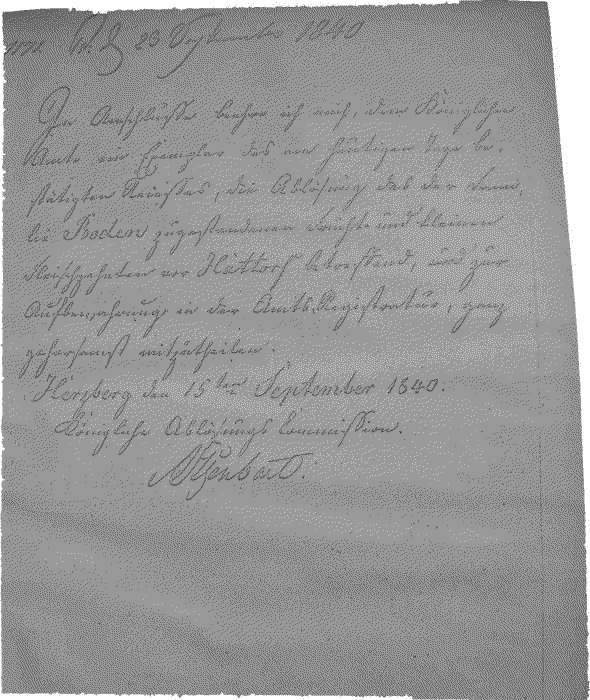 23 September 1840
Im Anschlusse beehre ich mich, dem Königlichen
Amte ein Exemplar des am heutigen Tage be-
stätigten Recesses, die Ablösung des der Fami-
lie Boden zugestandenen Frucht- und kleinen
Fleischzehnten vor Hattorf betreffend, und zur
Aufbewahrung in der Amts-Registratur, ganz
gehorsamst mitzutheilen.
Herzberg den 15ten September 1840.
Königliche Ablösungs Commission.